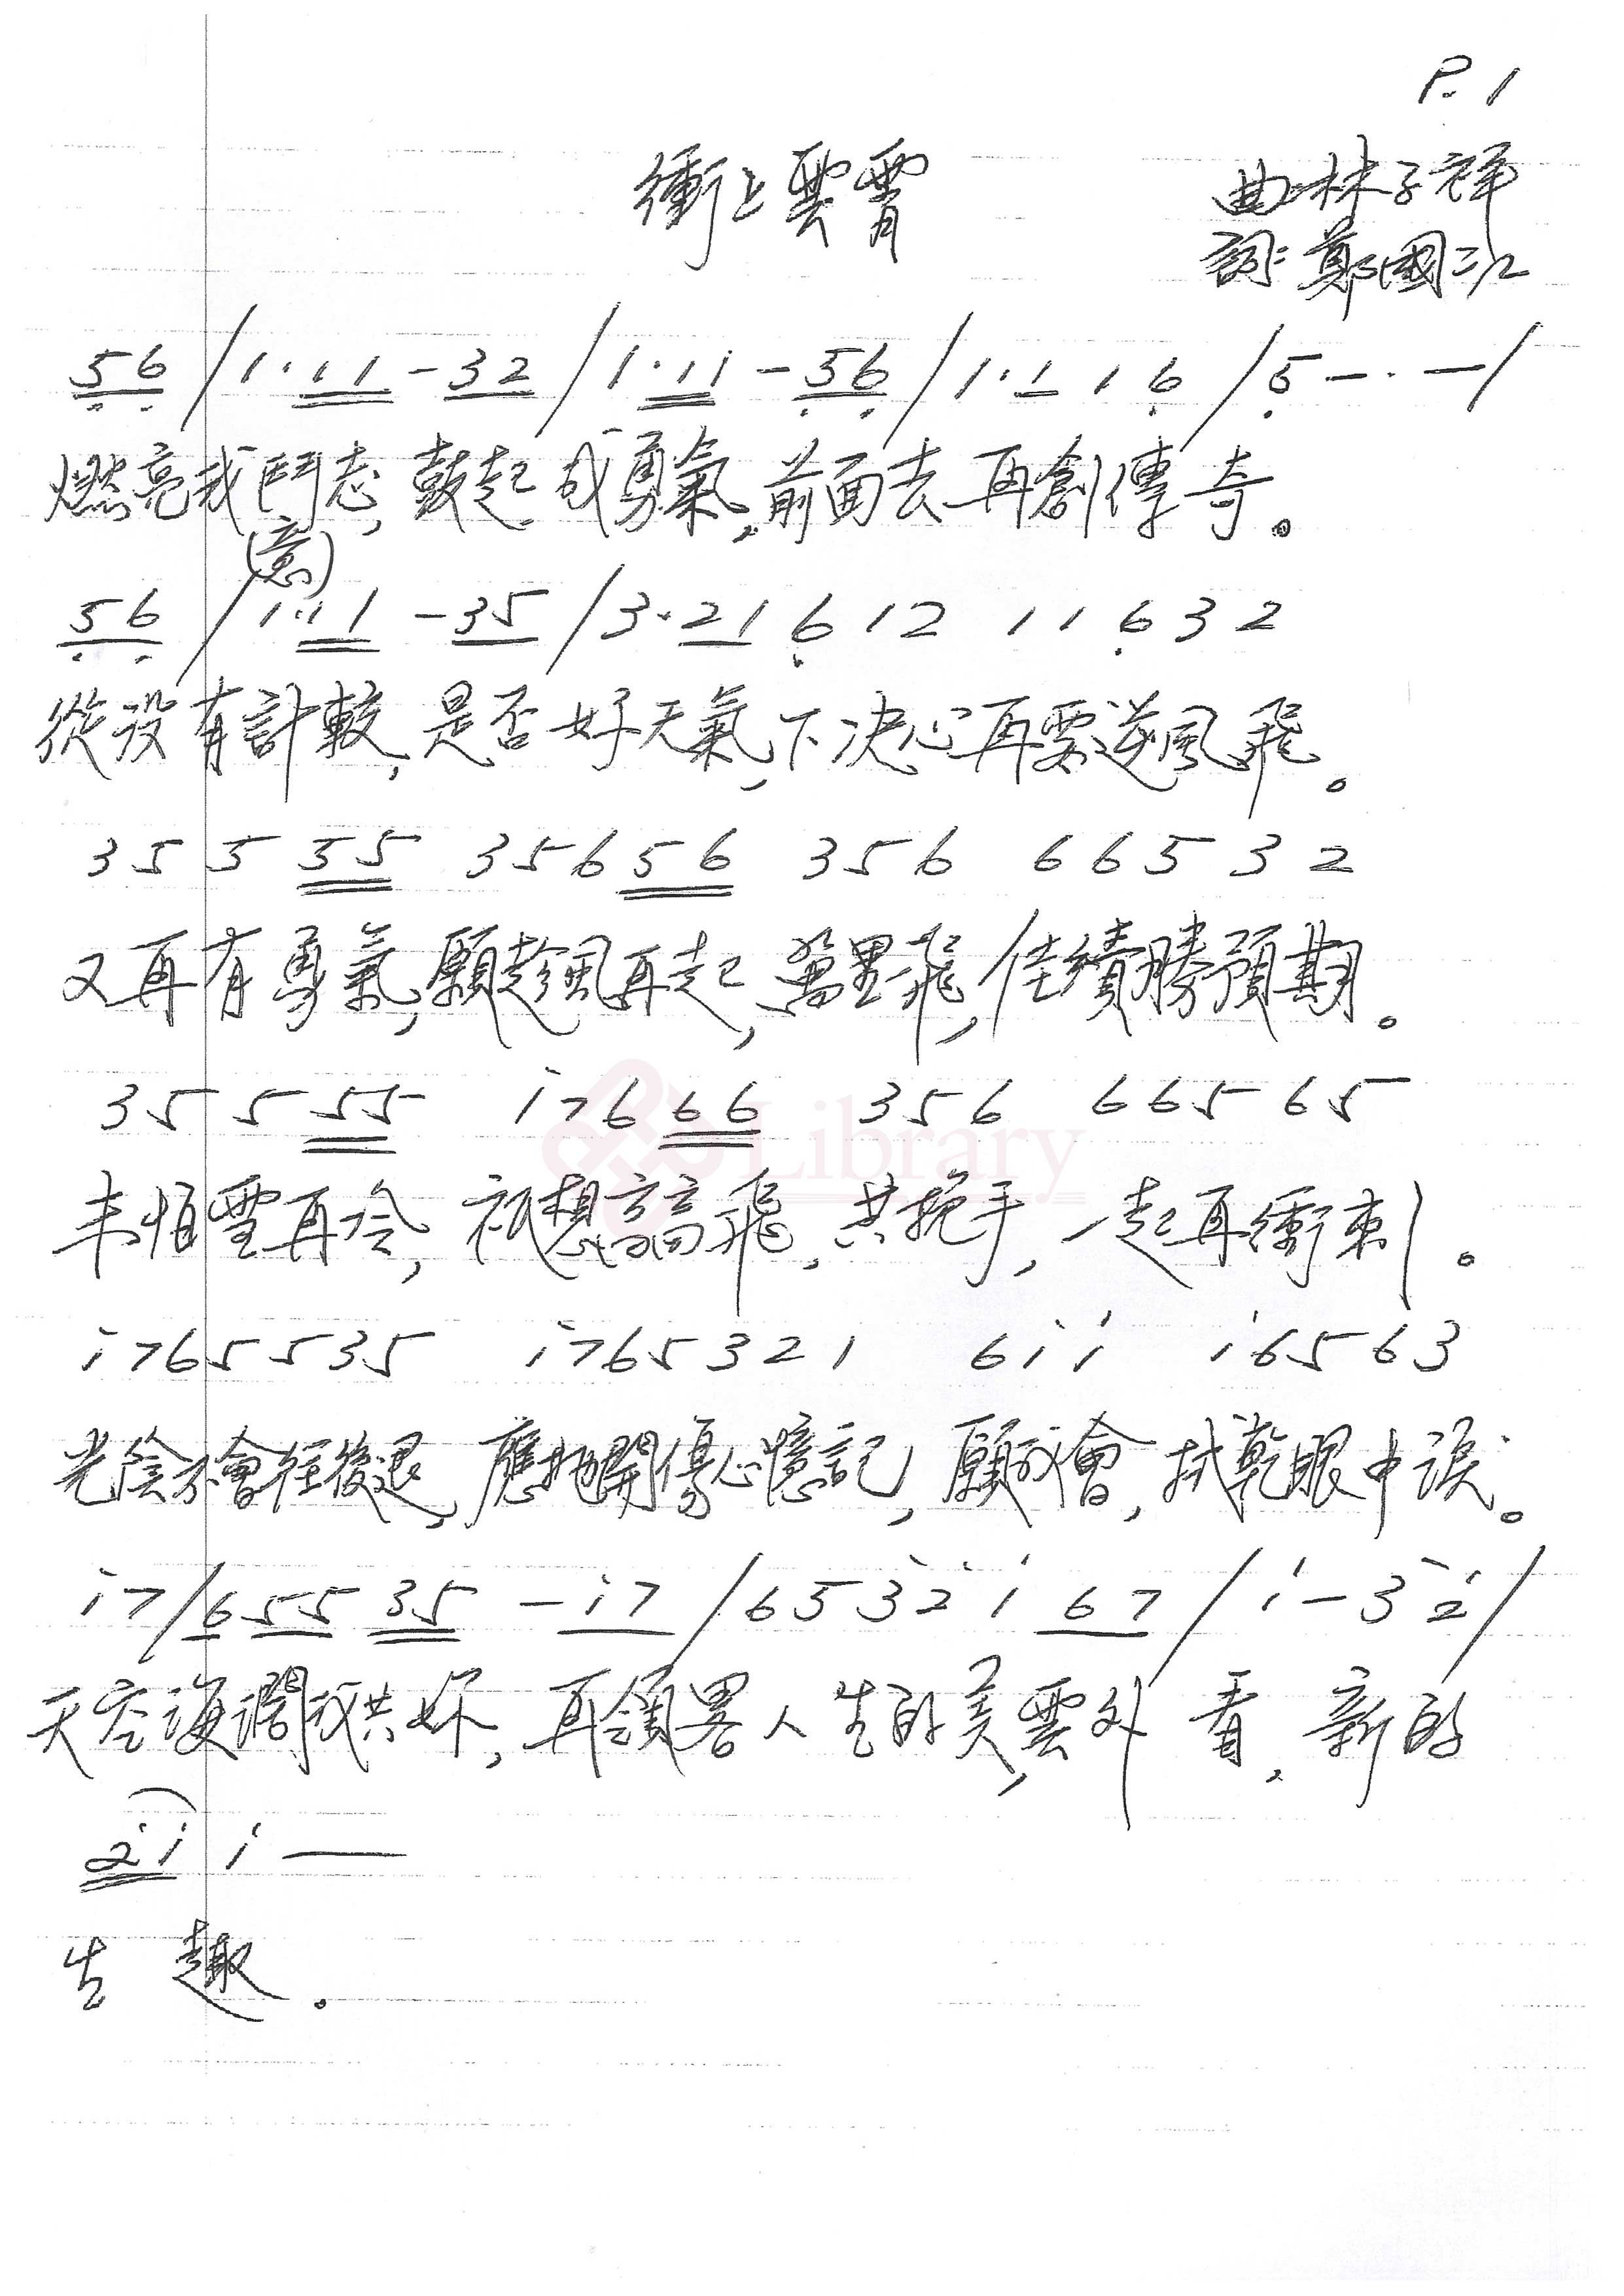 P. 1
衝上雲霄
曲:林子祥
詞:鄭國江
56 / 1·11 - 32 / 1·11 - 56 / 1·1 1 6 / 5 - · - /
燃亮我鬥志,鼓起我勇氣,前面去再創傳奇。
(意)
56 / 1·11 - 35 / 3·21 6 12 11 6 3 2
從沒有計較,是否好天氣,下决心再要逆風飛。
3 5 5 55 35656 356 66532
又再有勇氣,願趁風再起,萬里飛,佳績勝預期。
35555 i7666 356 66565
Library
未怕雪再冷,祇想高飛,共挽手,一起再衝刺。
i765535 i765321 6ii i6563
光陰不會往後退,應拋開傷心憶記,願我會,拭乾眼中淚。
i7/65535 - i7 / 653̇2̇i 67 / i - 3̇2̇ /
天空海濶我共你,再領畧人生的美,雲外看,新的
2̇i i —
生趣.